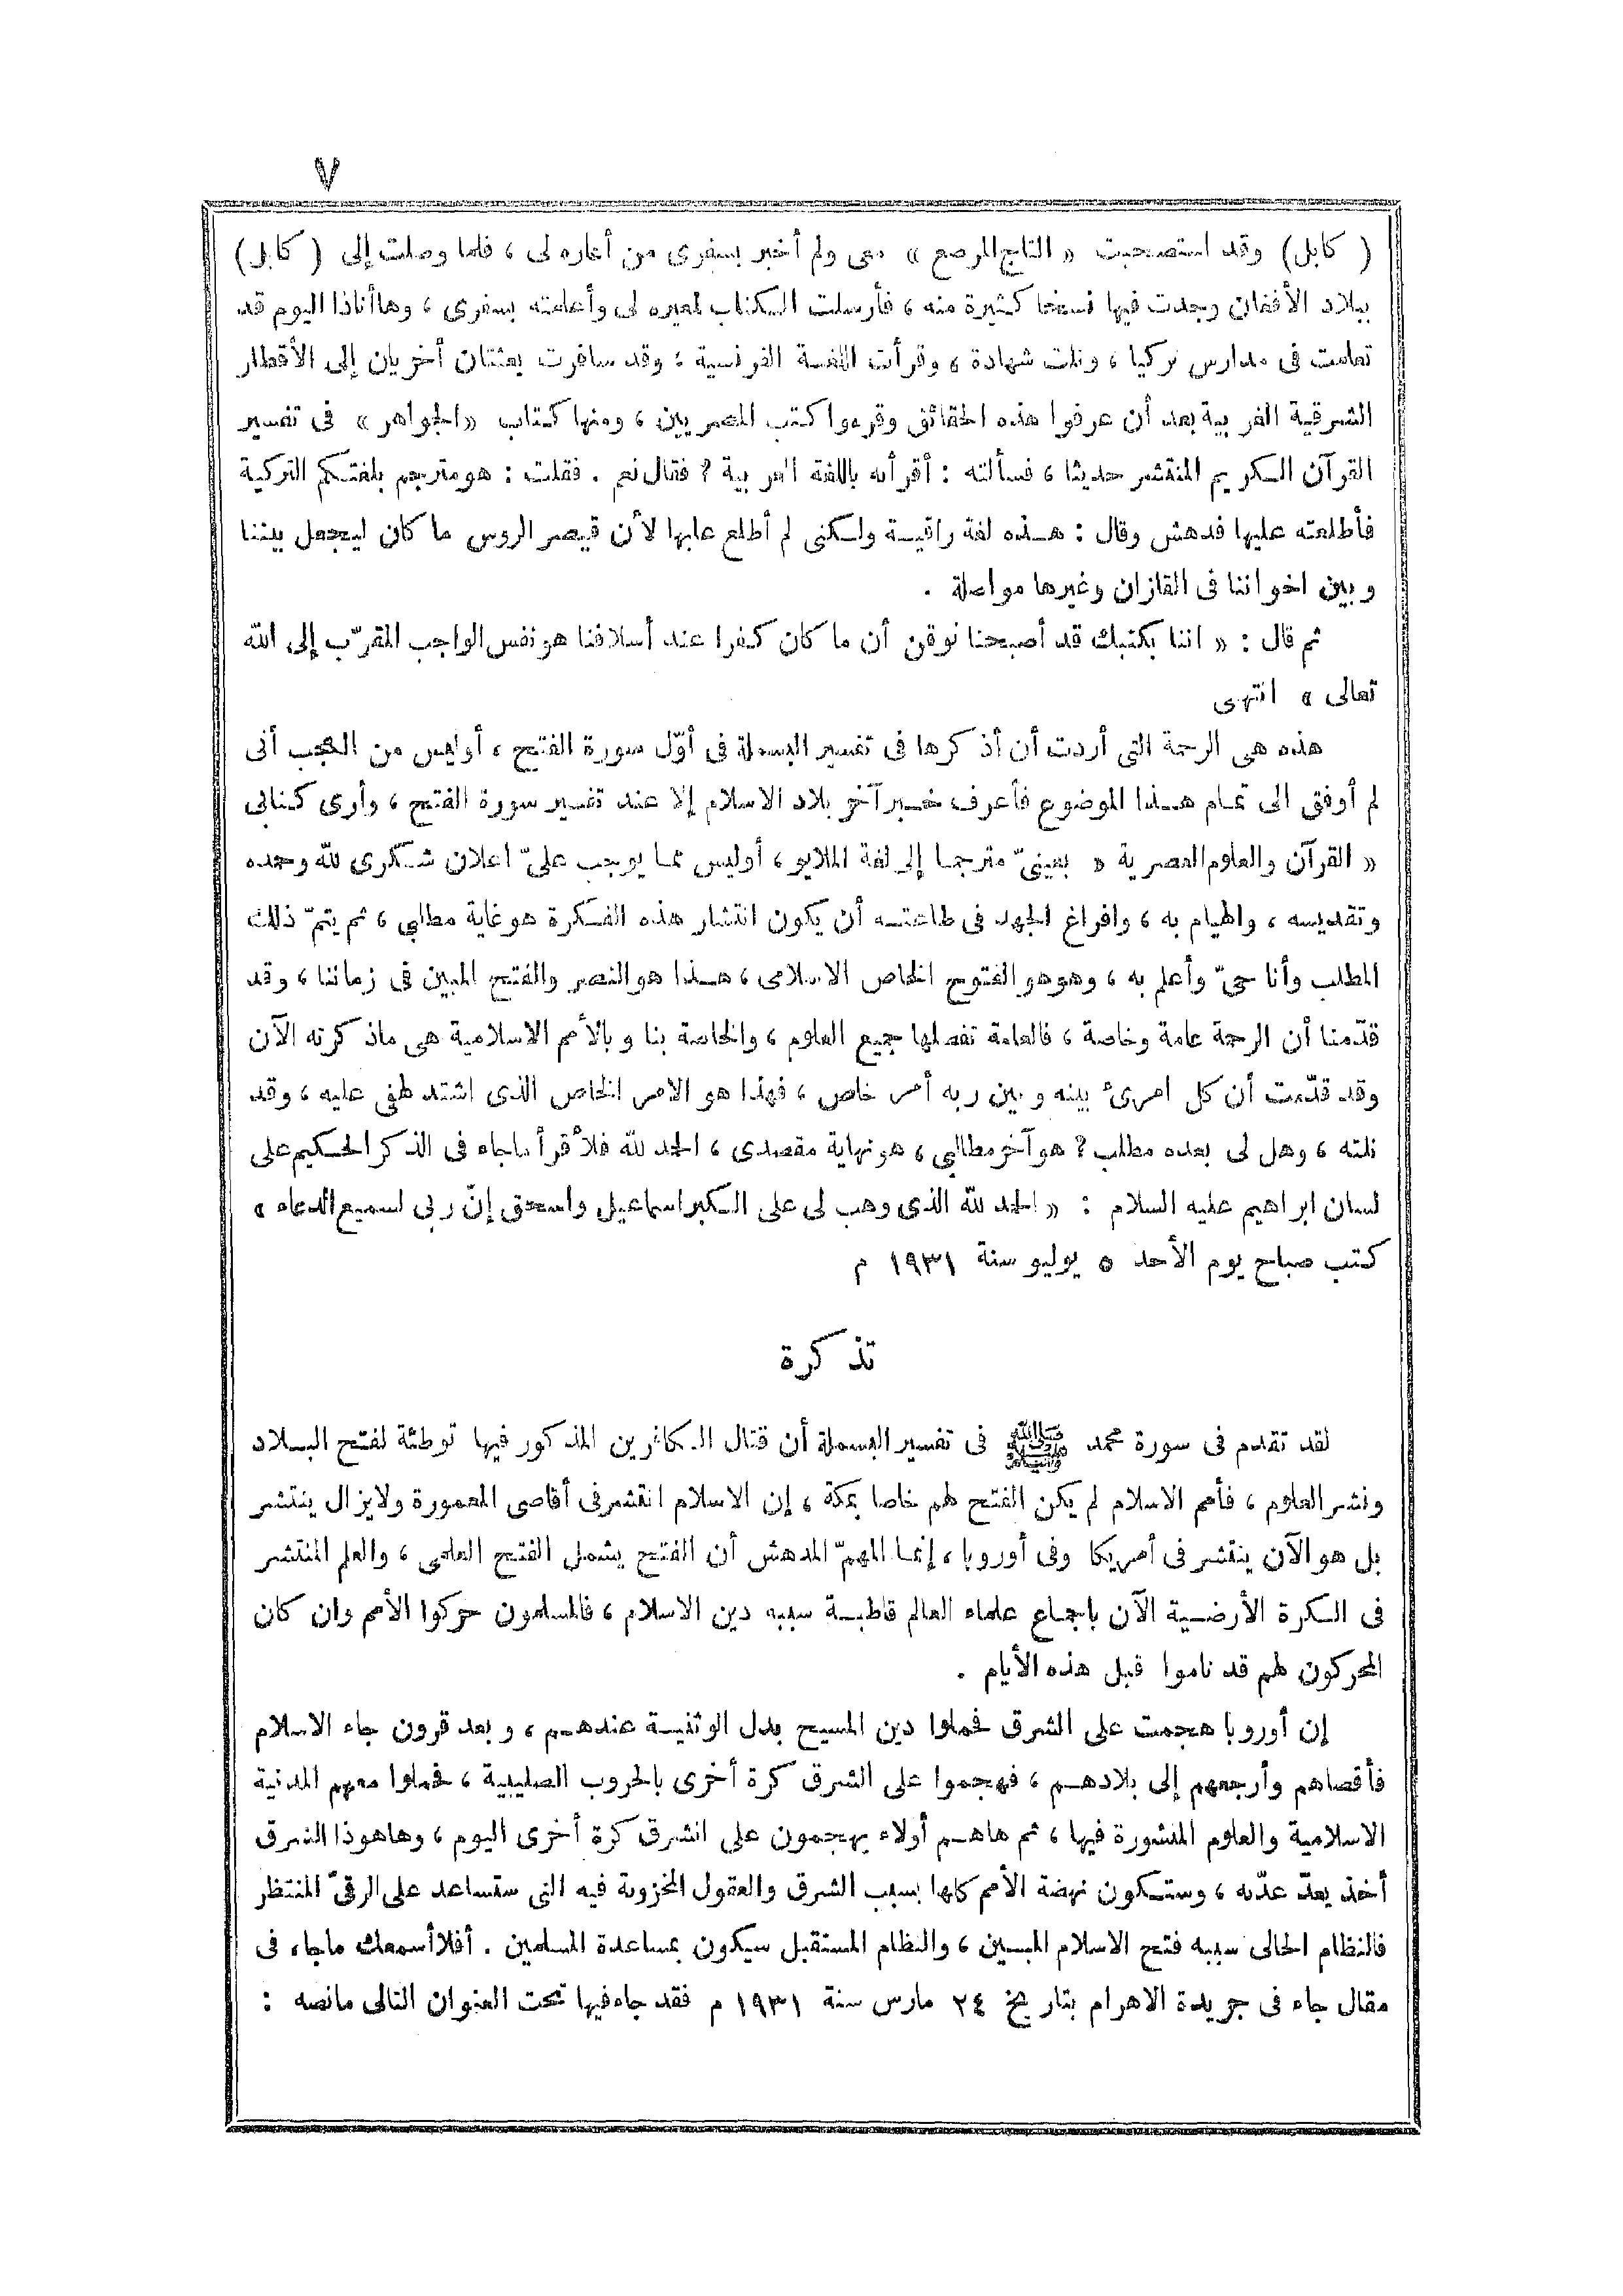 ٧
( كابل) وقد استصحبت « التاج المرصع » معى ولم أخبر بسفرى من أعاره لى ، فلما وصلت إلى ( كابل)
ببلاد الأفغان وجدت فيها نسخا كثيرة منه ، فأرسلت الكتاب لمعيره لى وأعلمته بسفرى ، وها أناذا اليوم قد
تعلمت فى مدارس تركيا ، ونلت شهادة ، وقرأت اللغة الفرنسية ، وقد سافرت بعثتان أخريان إلى الأقطار
الشرقية الغربية بعد أن عرفوا هذه الحقائق وقرءوا كتب المصريين ، ومنها كتاب «الجواهر» فى تفسير
القرآن الكريم المنتشر حديثا ، فسألته : أقرأته باللغة العربية ? فقال نعم . فقلت : هو مترجم بلغتكم التركية
فأطلعته عليها فدهش وقال : هذه لغة راقية ولكنى لم أطلع عليها لأن قيصر الروس ما كان ليجعل بيننا
وبين اخواننا فى القازان وغيرها مواصلة .
ثم قال : « اننا بكتبك قد أصبحنا نوقن أن ما كان كفرا عند أسلافنا هو نفس الواجب المقرّب إلى الله
تعالى » انتهى
هذه هى الرحمة التى أردت أن أذكرها فى تفسير البسملة فى أوّل سورة الفتح ، أوليس من العجب أنى
لم أوفق الى تمام هذا الموضوع فأعرف خبر آخر بلاد الاسلام إلا عند تفسير سورة الفتح ، وأرى كتابى
« القرآن والعلوم العصرية » بعينىّ مترجما إلى لغة الملايو ، أوليس مما يوجب علىّ اعلان شكرى لله وحمده
وتقديسه ، والهيام به ، وافراغ الجهد فى طاعته أن يكون انتشار هذه الفكرة هو غاية مطلبي ، ثم يتمّ ذلك
المطلب وأنا حىّ وأعلم به ، وهو هو الفتوح الخاص الاسلامى ، هذا هو النصر والفتح المبين فى زماننا ، وقد
قدّمنا أن الرحمة عامة وخاصة ، فالعامة تفصلها جميع العلوم ، والخاصة بنا وبالأمم الاسلامية هى ماذكرته الآن
وقد قدّمت أن كل امرئ بينه وبين ربه أمر خاص ، فهذا هو الامر الخاص الذى اشتد لهفى عليه ، وقد
نلته ، وهل لى بعده مطلب ? هو آخر مطالبي ، هو نهاية مقصدى ، الحمد لله فلأقرأ ماجاء فى الذكر الحكيم على
لسان ابراهيم عليه السلام : « الحمد لله الذى وهب لى على الكبر اسماعيل واسحق إنّ ربى لسميع الدعاء »
كتب صباح يوم الأحد ٥ يوليو سنة ١٩٣١ م
تذكرة
لقد تقدم فى سورة محمد ﷺ فى تفسير البسملة أن قتال الكافرين المذكور فيها توطئة لفتح البلاد
ونشر العلوم ، فأمم الاسلام لم يكن الفتح لهم خاصا بمكة ، إن الاسلام انتشر فى أقاصى المعمورة ولايزال ينتشر
بل هو الآن ينتشر فى أمريكا وفى أوروبا ، إنما المهمّ المدهش أن الفتح يشمل الفتح العلمى ، والعلم المنتشر
فى الكرة الأرضية الآن باجماع علماء العالم قاطبة سببه دين الاسلام ، فالمسلمون حركوا الأمم وان كان
المحركون لهم قد ناموا قبل هذه الأيام .
إن أوروبا هجمت على الشرق فحملوا دين المسيح بدل الوثنية عندهم ، وبعد قرون جاء الاسلام
فأقصاهم وأرجعهم إلى بلادهم ، فهجموا على الشرق كرة أخرى بالحروب الصليبية ، فحملوا معهم المدنية
الاسلامية والعلوم المنشورة فيها ، ثم هاهم أولاء يهجمون على الشرق كرة أخرى اليوم ، وهاهوذا الشرق
أخذ يعدّ عدّته ، وستكون نهضة الأمم كلها بسبب الشرق والعقول المخزونة فيه التى ستساعد على الرقىّ المنتظر
فالنظام الحالى سببه فتح الاسلام المبين ، والنظام المستقبل سيكون بمساعدة المسلمين . أفلا أسمعك ماجاء فى
مقال جاء فى جريدة الاهرام بتاريخ ٢٤ مارس سنة ١٩٣١ م فقد جاء فيها تحت العنوان التالى مانصه :